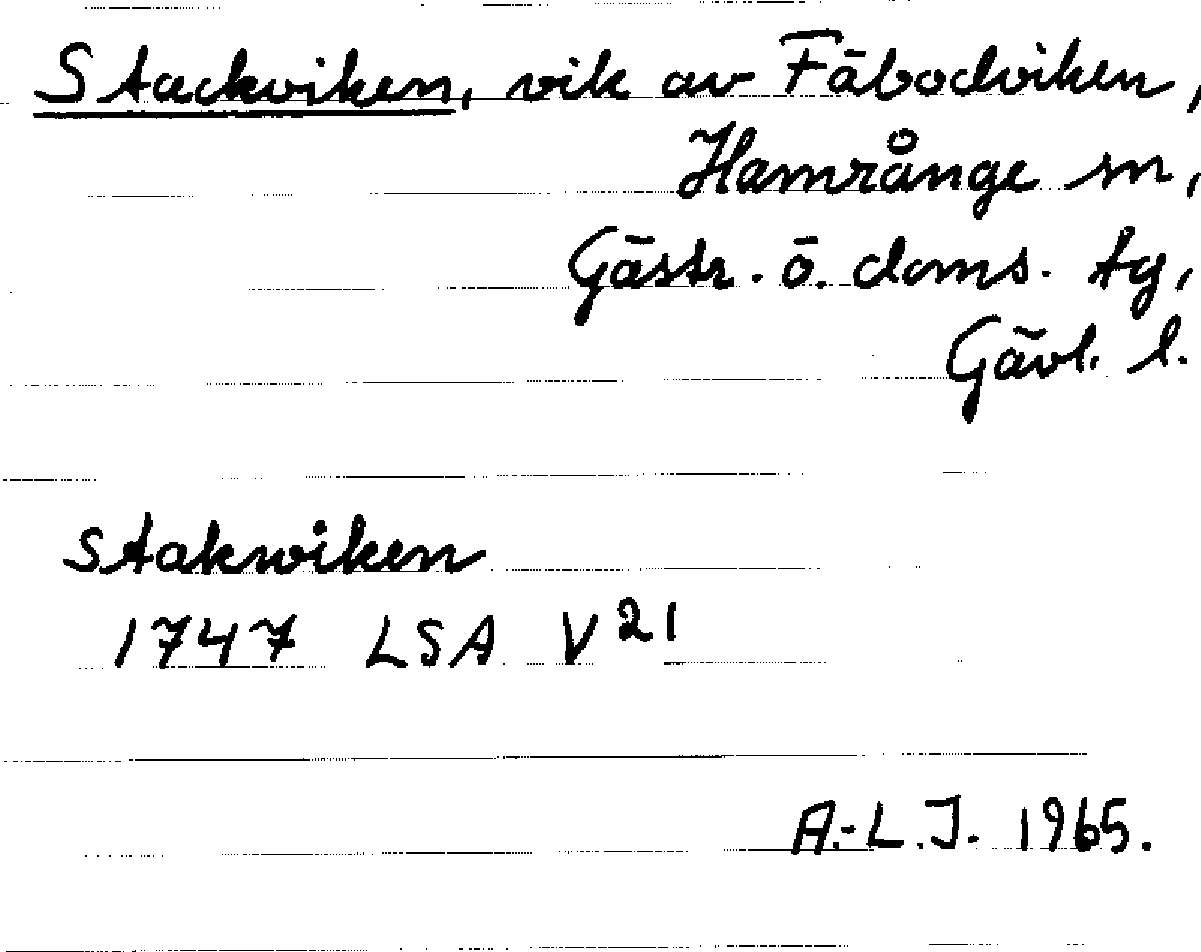 Stackviken, vik av Fäbodviken,
Hamrånge sn,
Gästr. ö. doms. tg,
Gävl. l.
Stakwiken
1747 LSA V 21
A.-L.J. 1965.